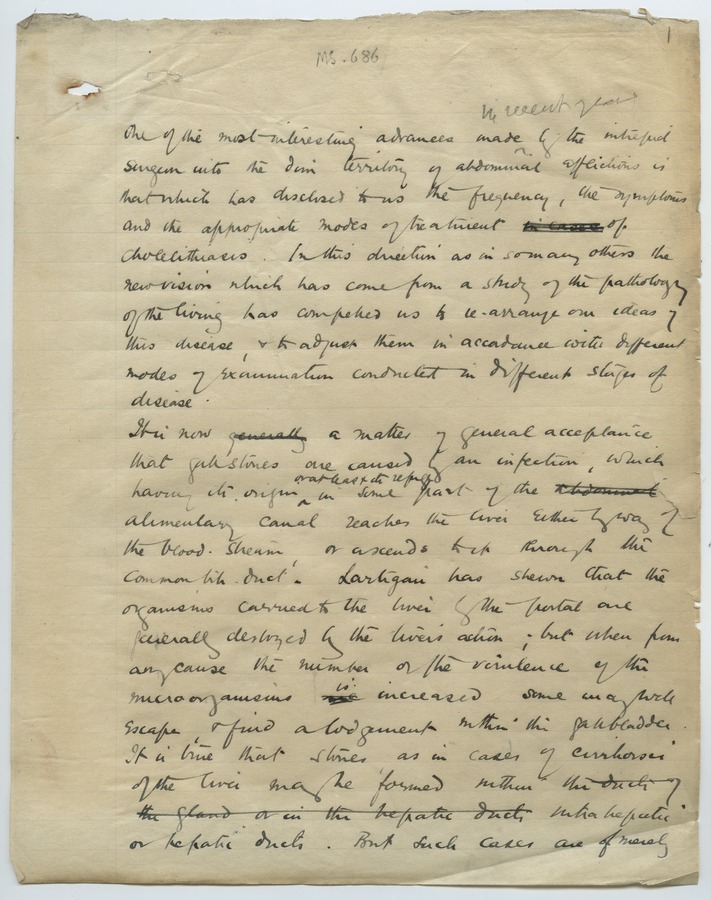 1
MS. 686
in recent years
One of the most interesting advances made by the intrepid
surgeon into the dim territory of abdominal afflictions is
that which has disclosed to us the frequency, the symptoms
and the appropriate modes of treatment in cases of
cholelithiasis. In this direction as in so many others the
new vision which has come from a study of the pathology
of the living has compelled us to re-arrange our ideas of
this disease, & to adjust them in accordance with different
modes of examination conducted in different stages of
disease.
It is now generally a matter of general acceptance
that gallstones are caused by an infection, which
or at least its refuge
having its origin, in some part of the abdominal
alimentary canal reaches the liver either by way of
the blood-stream, or ascends to it through the
common bile-duct. Lartigau has shewn that the
organisms carried to the liver by the portal are
generally destroyed by the liver's action; but when from
any cause the number or the virulence of the
is
microorganisms are increased some may well
escape, & find a lodgement within the gallbladder.
It is true that stones, as in cases of cirrhosis
of the liver may be formed within the ducts of
the gland or in the hepatic ducts intrahepatic
or hepatic ducts. But such cases are of merely